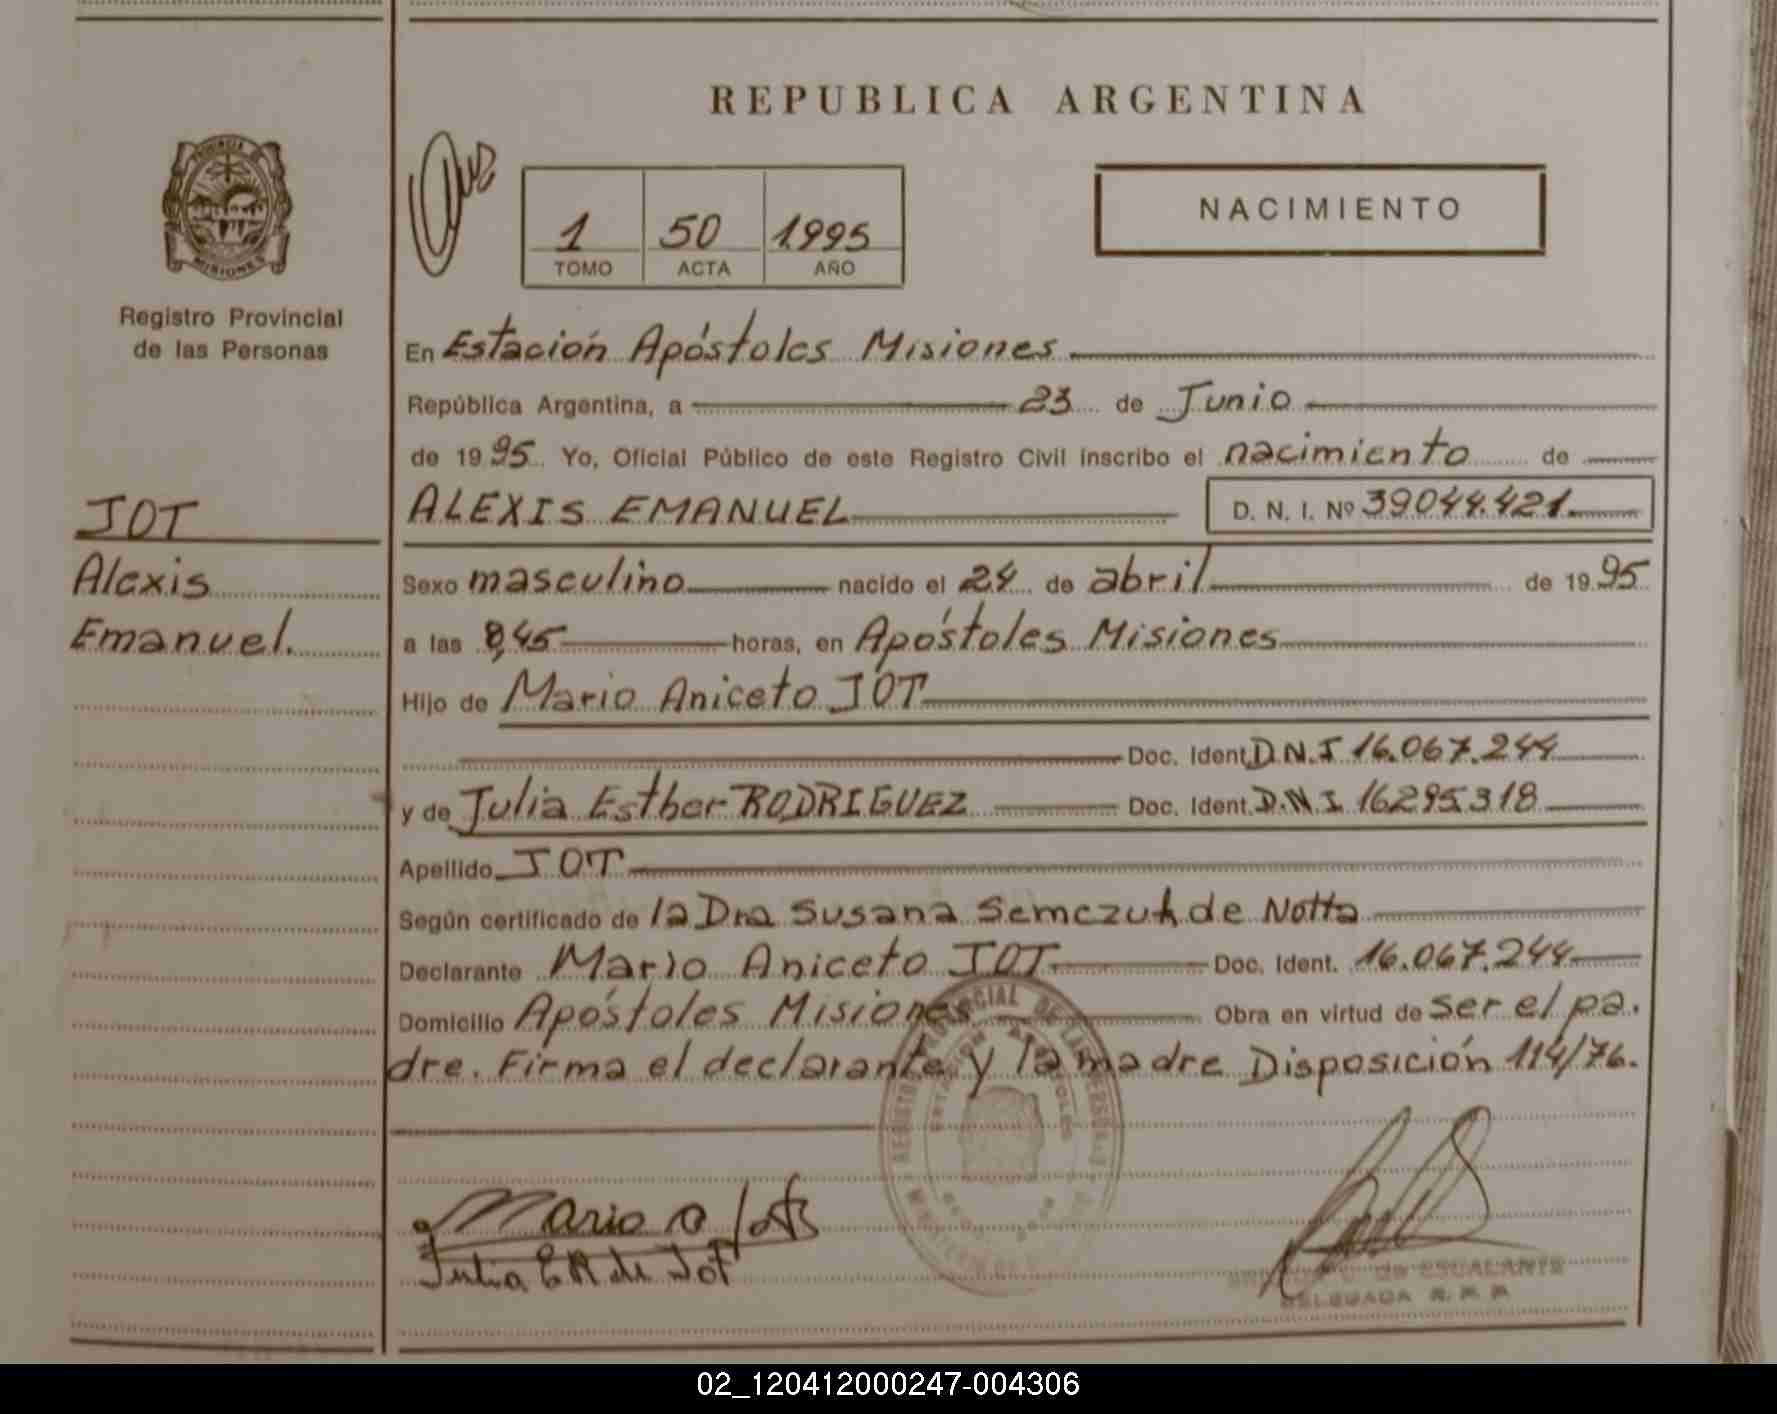 REPUBLICA ARGENTINA
PROVINCIA DE
MISIONES
Registro Provincial
de las Personas
1 50 1995
TOMO ACTA AÑO
NACIMIENTO
En Estación Apóstoles Misiones
República Argentina, a 23 de Junio
de 1995 Yo, Oficial Público de este Registro Civil inscribo el nacimiento de
JOT
Alexis
Emanuel.
ALEXIS EMANUEL D. N. I. Nº 39044.421.
Sexo masculino nacido el 24 de abril de 1995
a las 8,45 horas, en Apóstoles Misiones
Hijo de Mario Aniceto JOT
Doc. Ident. D.N.I 16.067.244
y de Julia Esther RODRIGUEZ Doc. Ident. D.N.I 16295318
Apellido JOT
Según certificado de la Dra Susana Semczuk de Notta
Declarante Mario Aniceto JOT Doc. Ident. 16.067.244
Domicilio Apóstoles Misiones Obra en virtud de ser el pa.
dre. Firma el declarante y la madre Disposición 114/76.
REGISTRO PROVINCIAL DE LAS PERSONAS
ESTACION APOSTOLES
Mario A Jot
Julia E R de Jot
de ESCALANTE
DELEGADA R. P. P.
02_120412000247-004306